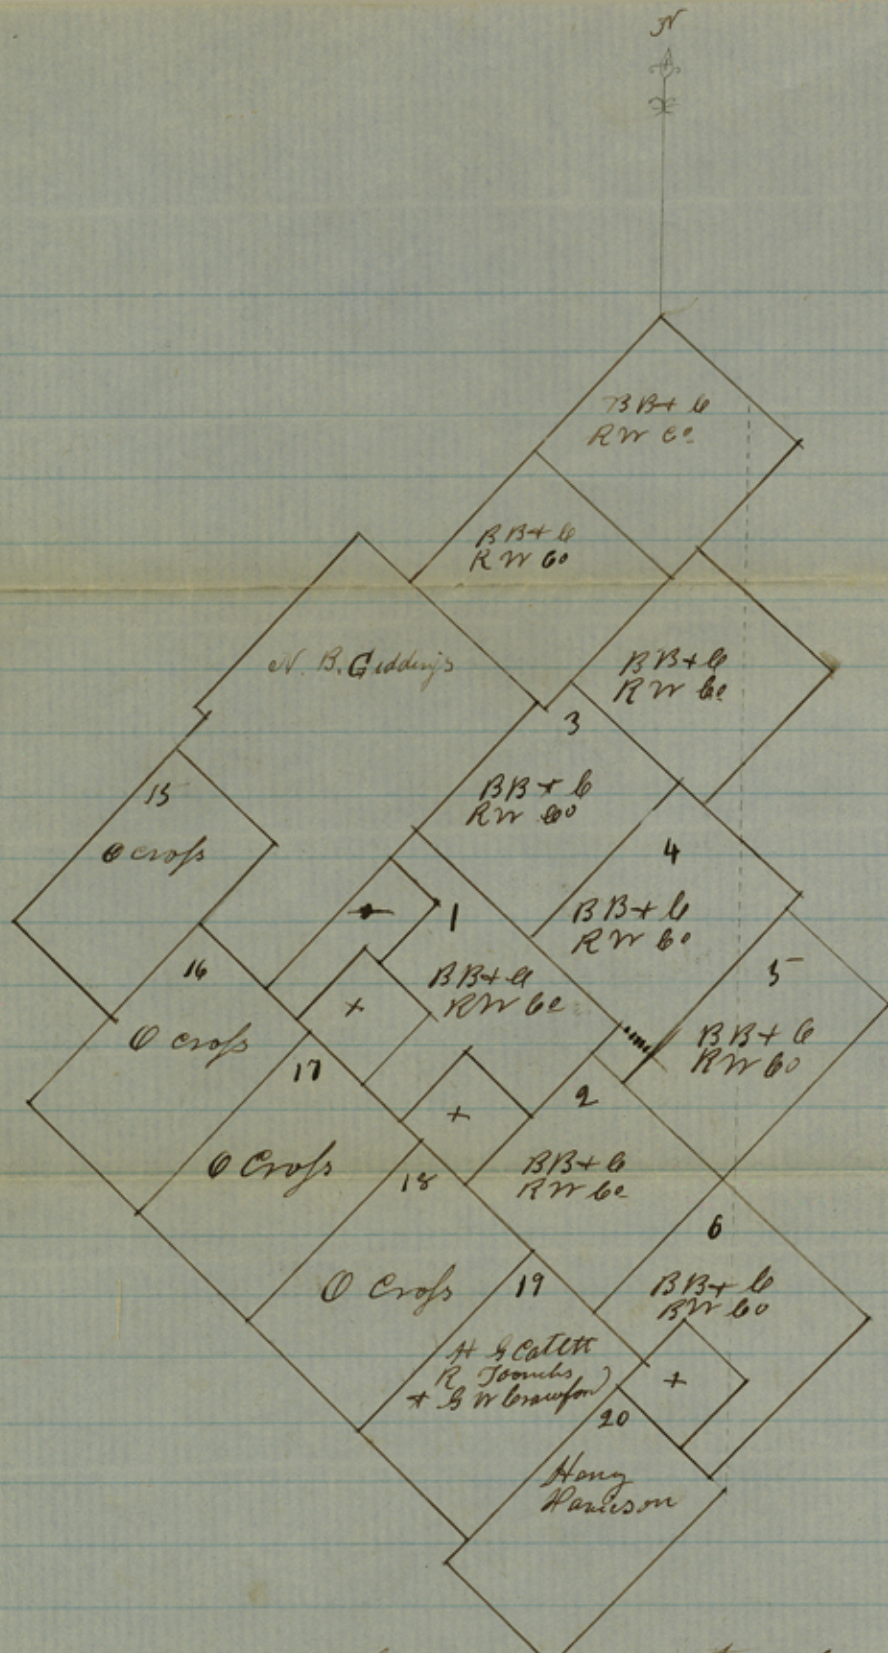 N
BB + C
RW Co
BB + C
RW Co
N. B. Giddings
BB + C
RW Co
3
BB + C
RW Co
15
O Cross
4
BB + C
RW Co
1
BB + C
RW Co
+
5
BB + C
RW Co
16
O Cross
+
17
O Cross
2
BB + C
RW Co
+
18
O Cross
6
BB + C
RW Co
19
H G Catlett
R Toombs
+ G W Crawford
+
20
Henry